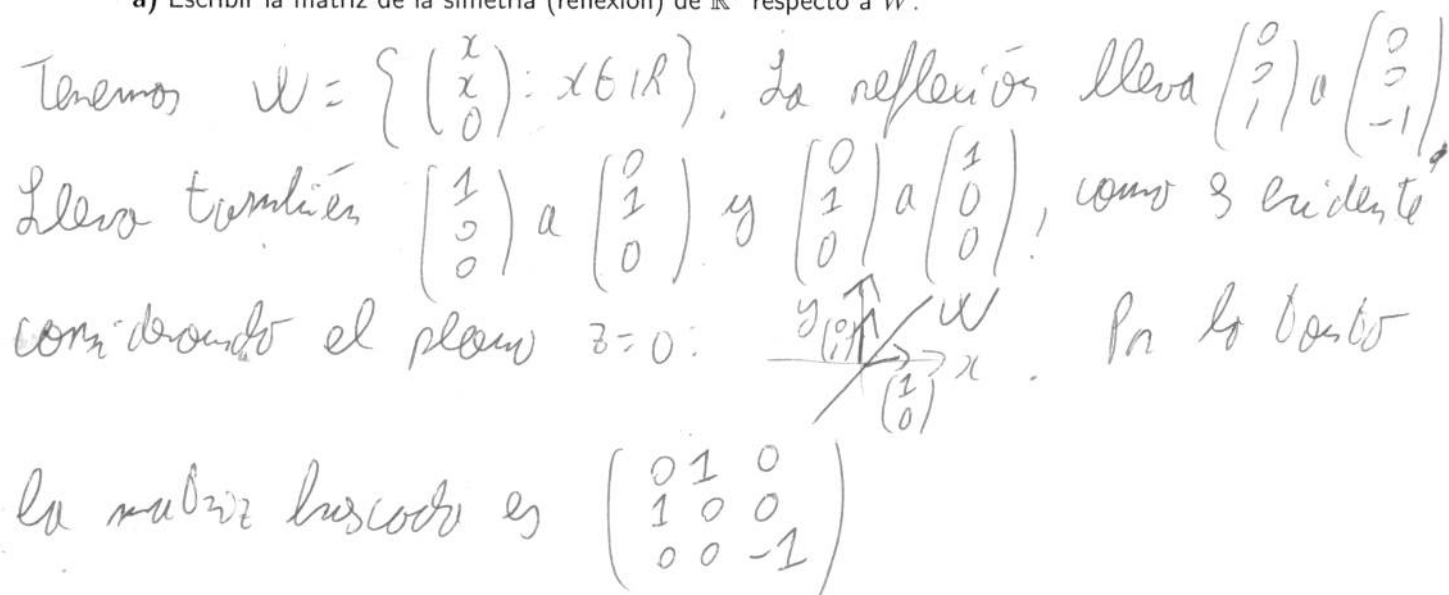 a) Escribir la matriz de la simetría (reflexión) de ℝ respecto a W.
Tenemos W = { (x x 0) : x ∈ ℝ }. La reflexión lleva (0 0 1) a (0 0 -1).
Lleva también (1 0 0) a (0 1 0) y (0 1 0) a (1 0 0), como es evidente
considerando el plano z=0: y (0 1) W (1 0) x . Por lo tanto
la matriz buscada es (0 1 0
1 0 0
0 0 -1)